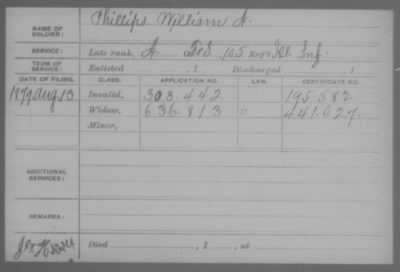 NAME OF SOLDIER: Phillips, William
SERVICE: Late rank, 105 Ill. Inf.
TERM OF SERVICE: Enlisted , 1 Discharged , 1
DATE OF FILING. CLASS. APPLICATION NO. LAW. CERTIFICATE NO.
1879 Aug 13 Invalid, 303.442 195.582
Widow, 636.813 441.627
Minor,
ADDITIONAL SERVICES:
REMARKS:
Died , 1 , at